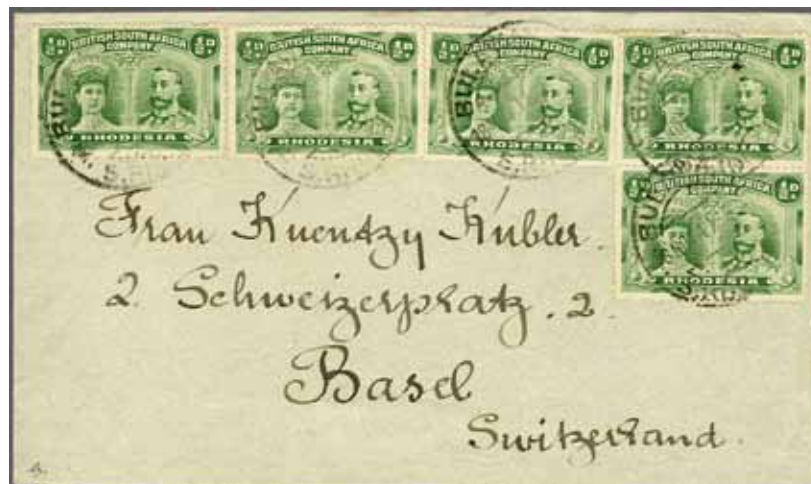 ½D. BRITISH SOUTH AFRICA COMPANY ½D.
RHODESIA
½D. BRITISH SOUTH AFRICA COMPANY ½D.
RHODESIA
½D. BRITISH SOUTH AFRICA COMPANY ½D.
RHODESIA
½D. BRITISH SOUTH AFRICA COMPANY ½D.
RHODESIA
½D. BRITISH SOUTH AFRICA COMPANY ½D.
RHODESIA
Frau Kuentzy Kubler.
2. Schweizerplatz. 2.
Basel
Switzerland.